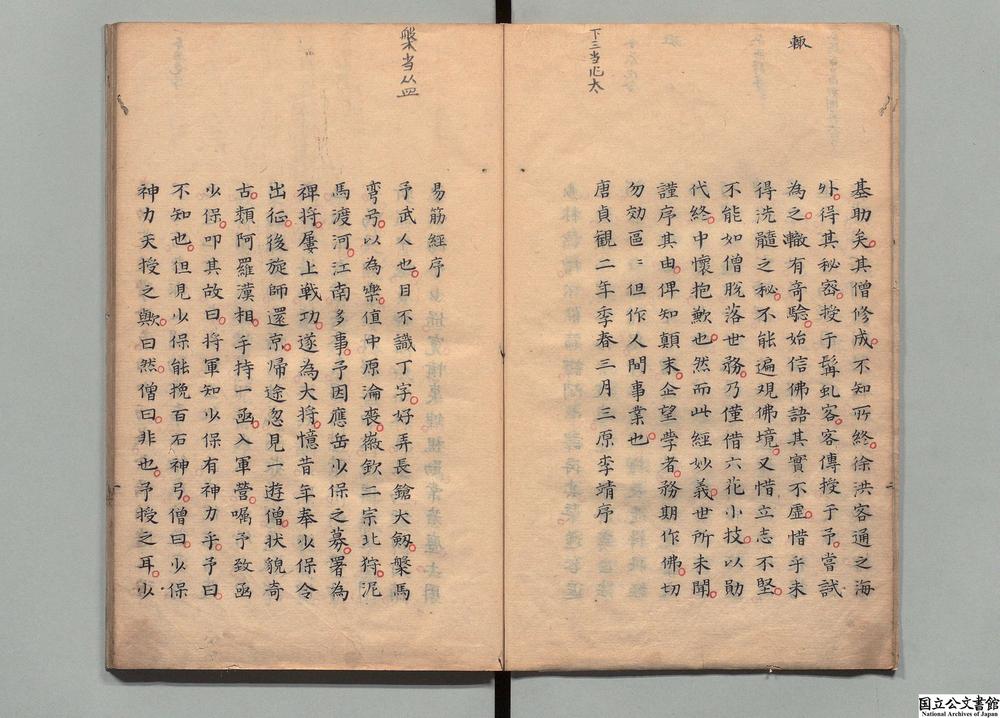 輙
下三当心太
基助矣其僧修成不知所終徐洪客通之海
外得其秘宻授于髯虬客客傳授于予嘗試
為之轍有奇驗始信佛語其實不虛惜乎未
得洗髓之秘不能遍观佛境又惜立志不堅
不能如僧脫落世務乃僅借六花小技以勛
代終中懷抱歉也然而此經妙義世所未聞
謹序其由俾知顛末企望學者務期作佛切
勿効區〻但作人間事業也
唐貞観二年季春三月三原李靖序
槃当从皿
易筋經序
予武人也目不識丁字好弄長鎗大劒槃馬
彎弓以為樂值中原淪喪徽欽二宗北狩泥
馬渡河江南多事予因應岳少保之募署為
裨将屢上戦功遂為大将憶昔年奉少保令
出征後旋師還京帰途忽見一遊僧狀貌奇
古類阿羅漢相手持一函入軍營嘱予致函
少保叩其故曰将軍知少保有神力乎予曰
不知也但見少保能挽百石神弓僧曰少保
神力天授之歟曰然僧曰非也予授之耳少
国立公文書館
National Archives of Japan